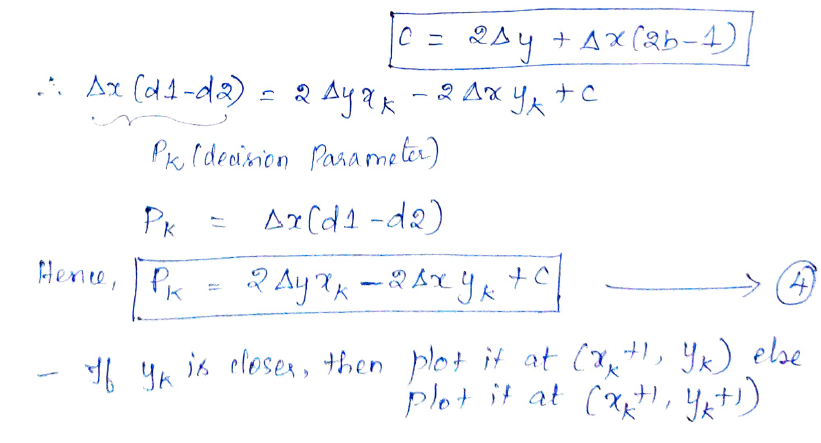 C = 2Δy + Δx(2b-1)
∴ Δx (d1-d2) = 2 Δy xₖ - 2 Δx yₖ + C
Pₖ (decision Parameter)
Pₖ = Δx(d1-d2)
Hence, Pₖ = 2Δy xₖ - 2Δx yₖ + C → ④
- If yₖ is closer, then plot it at (xₖ+1, yₖ) else
plot it at (xₖ+1, yₖ+1)